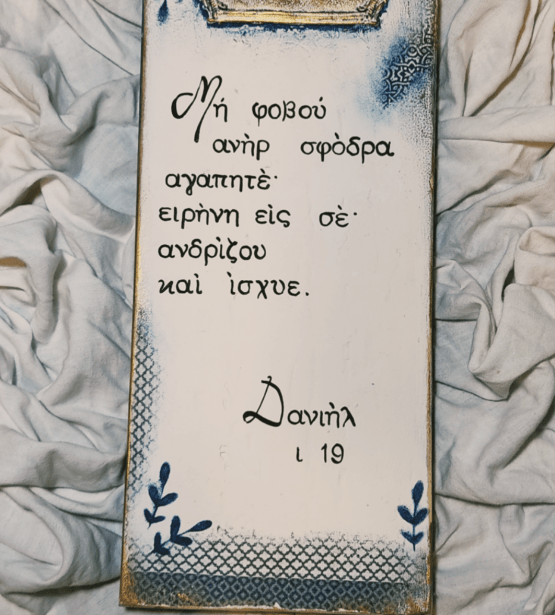 Μή φοβού
ανὴρ σφὸδρα
αγαπητὲ·
ειρὴνη εὶς σὲ·
ανδρὶζου
καὶ ὶσχυε.
Δανιὴλ
ι 19